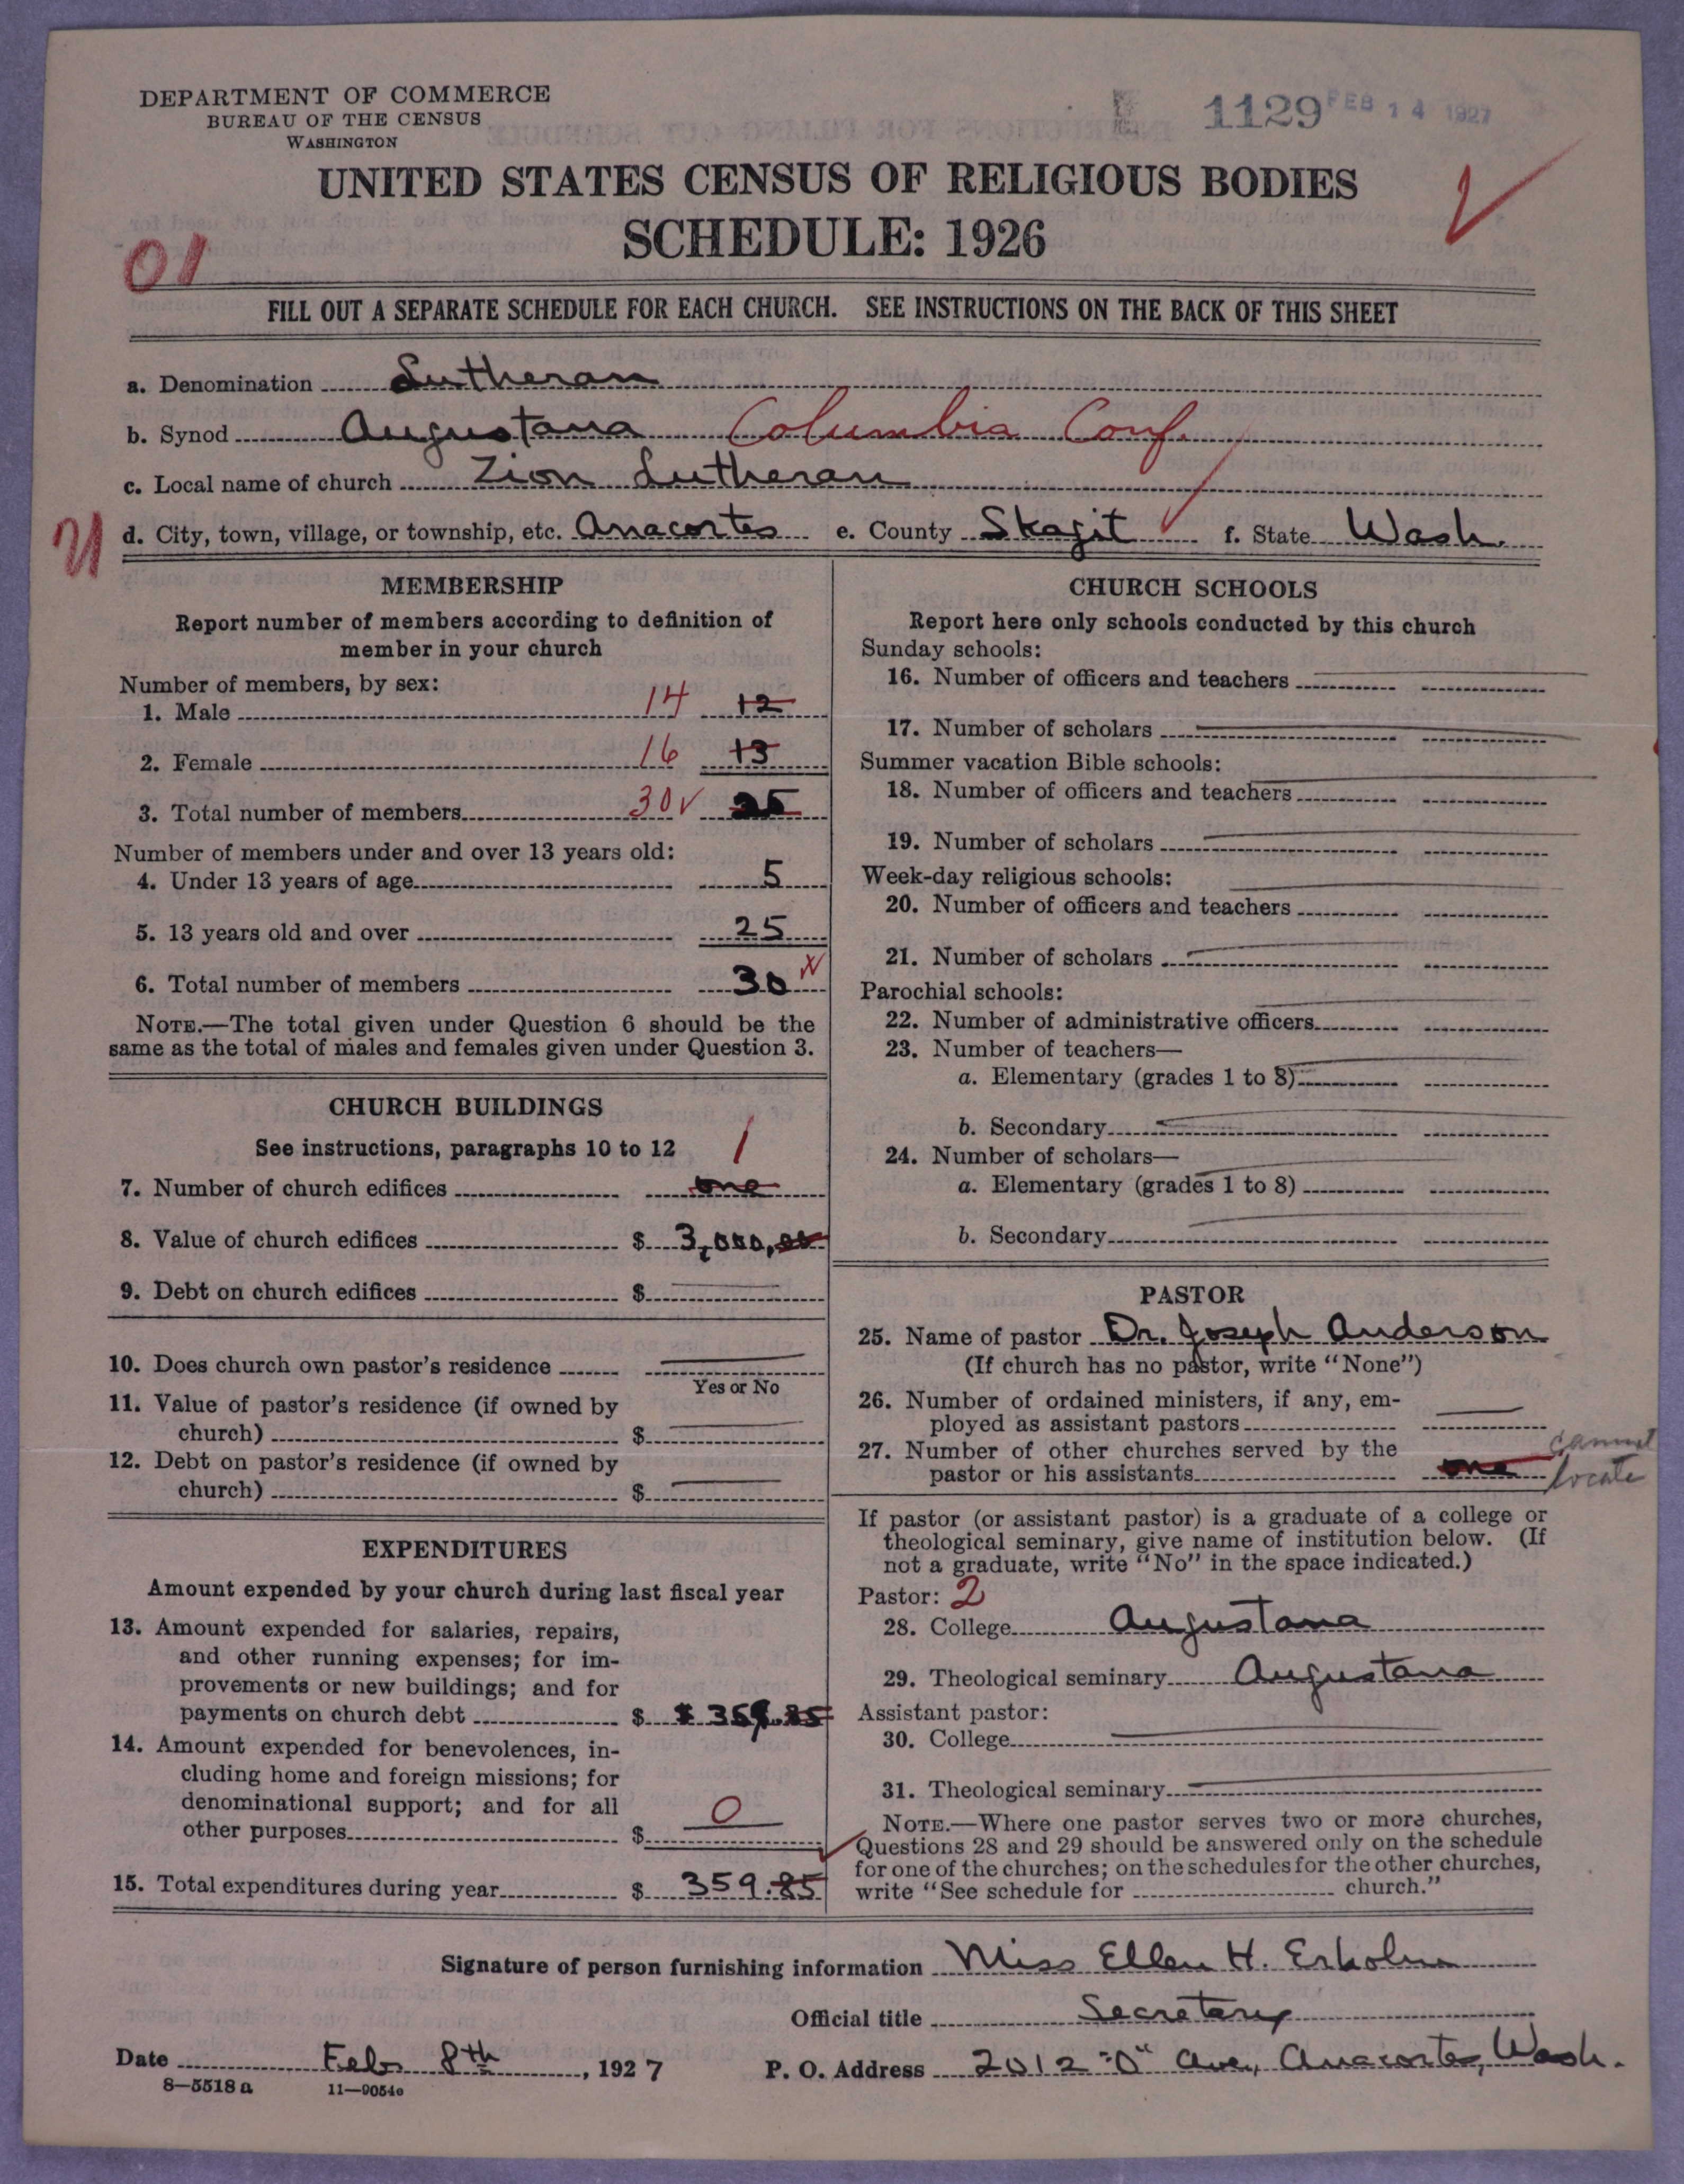 DEPARTMENT OF COMMERCE
BUREAU OF THE CENSUS
WASHINGTON
1129 FEB 14 1927
UNITED STATES CENSUS OF RELIGIOUS BODIES
SCHEDULE: 1926
01
FILL OUT A SEPARATE SCHEDULE FOR EACH CHURCH. SEE INSTRUCTIONS ON THE BACK OF THIS SHEET
a. Denomination Lutheran
b. Synod Augustana Columbia Conf.
c. Local name of church Zion Lutheran
d. City, town, village, or township, etc. Anacortes e. County Skagit f. State Wash.
MEMBERSHIP
Report number of members according to definition of
member in your church
Number of members, by sex:
1. Male 14 12
2. Female 16 13
3. Total number of members 30 25
Number of members under and over 13 years old:
4. Under 13 years of age 5
5. 13 years old and over 25
6. Total number of members 30
NOTE.—The total given under Question 6 should be the
same as the total of males and females given under Question 3.
CHURCH BUILDINGS
See instructions, paragraphs 10 to 12 1
7. Number of church edifices one
8. Value of church edifices $ 3,000,00
9. Debt on church edifices $
10. Does church own pastor's residence
Yes or No
11. Value of pastor's residence (if owned by
church) $
12. Debt on pastor's residence (if owned by
church) $
EXPENDITURES
Amount expended by your church during last fiscal year
13. Amount expended for salaries, repairs,
and other running expenses; for im-
provements or new buildings; and for
payments on church debt $ $ 359.85
14. Amount expended for benevolences, in-
cluding home and foreign missions; for
denominational support; and for all
other purposes $ 0
15. Total expenditures during year $ 359.85
CHURCH SCHOOLS
Report here only schools conducted by this church
Sunday schools:
16. Number of officers and teachers
17. Number of scholars
Summer vacation Bible schools:
18. Number of officers and teachers
19. Number of scholars
Week-day religious schools:
20. Number of officers and teachers
21. Number of scholars
Parochial schools:
22. Number of administrative officers
23. Number of teachers—
a. Elementary (grades 1 to 8)
b. Secondary
24. Number of scholars—
a. Elementary (grades 1 to 8)
b. Secondary
PASTOR
25. Name of pastor Dr. Joseph Anderson
(If church has no pastor, write "None")
26. Number of ordained ministers, if any, em-
ployed as assistant pastors
27. Number of other churches served by the
pastor or his assistants one cannot
locate
If pastor (or assistant pastor) is a graduate of a college or
theological seminary, give name of institution below. (If
not a graduate, write "No" in the space indicated.)
Pastor: 2
28. College Augustana
29. Theological seminary Augustana
Assistant pastor:
30. College
31. Theological seminary
NOTE.—Where one pastor serves two or more churches,
Questions 28 and 29 should be answered only on the schedule
for one of the churches; on the schedules for the other churches,
write "See schedule for church."
Signature of person furnishing information Miss Ellen H. Erholm
Official title Secretary
Date Feb 8th, 1927 P. O. Address 2012 "O" Ave, Anacortes, Wash.
8—5518 a 11—9054c